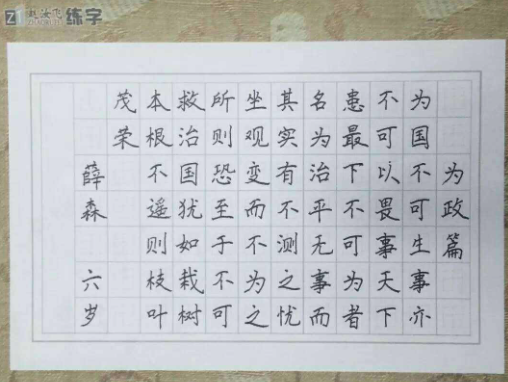 赵汝飞练字
为政篇
为国不可生事亦
不可以畏事天下
患最下不可为者
名为治平无事而
其实有不测之忧
坐观变而不为之
所则恐至于不可
救治国犹如栽树
本根不遥则枝叶
茂荣
薛森 六岁